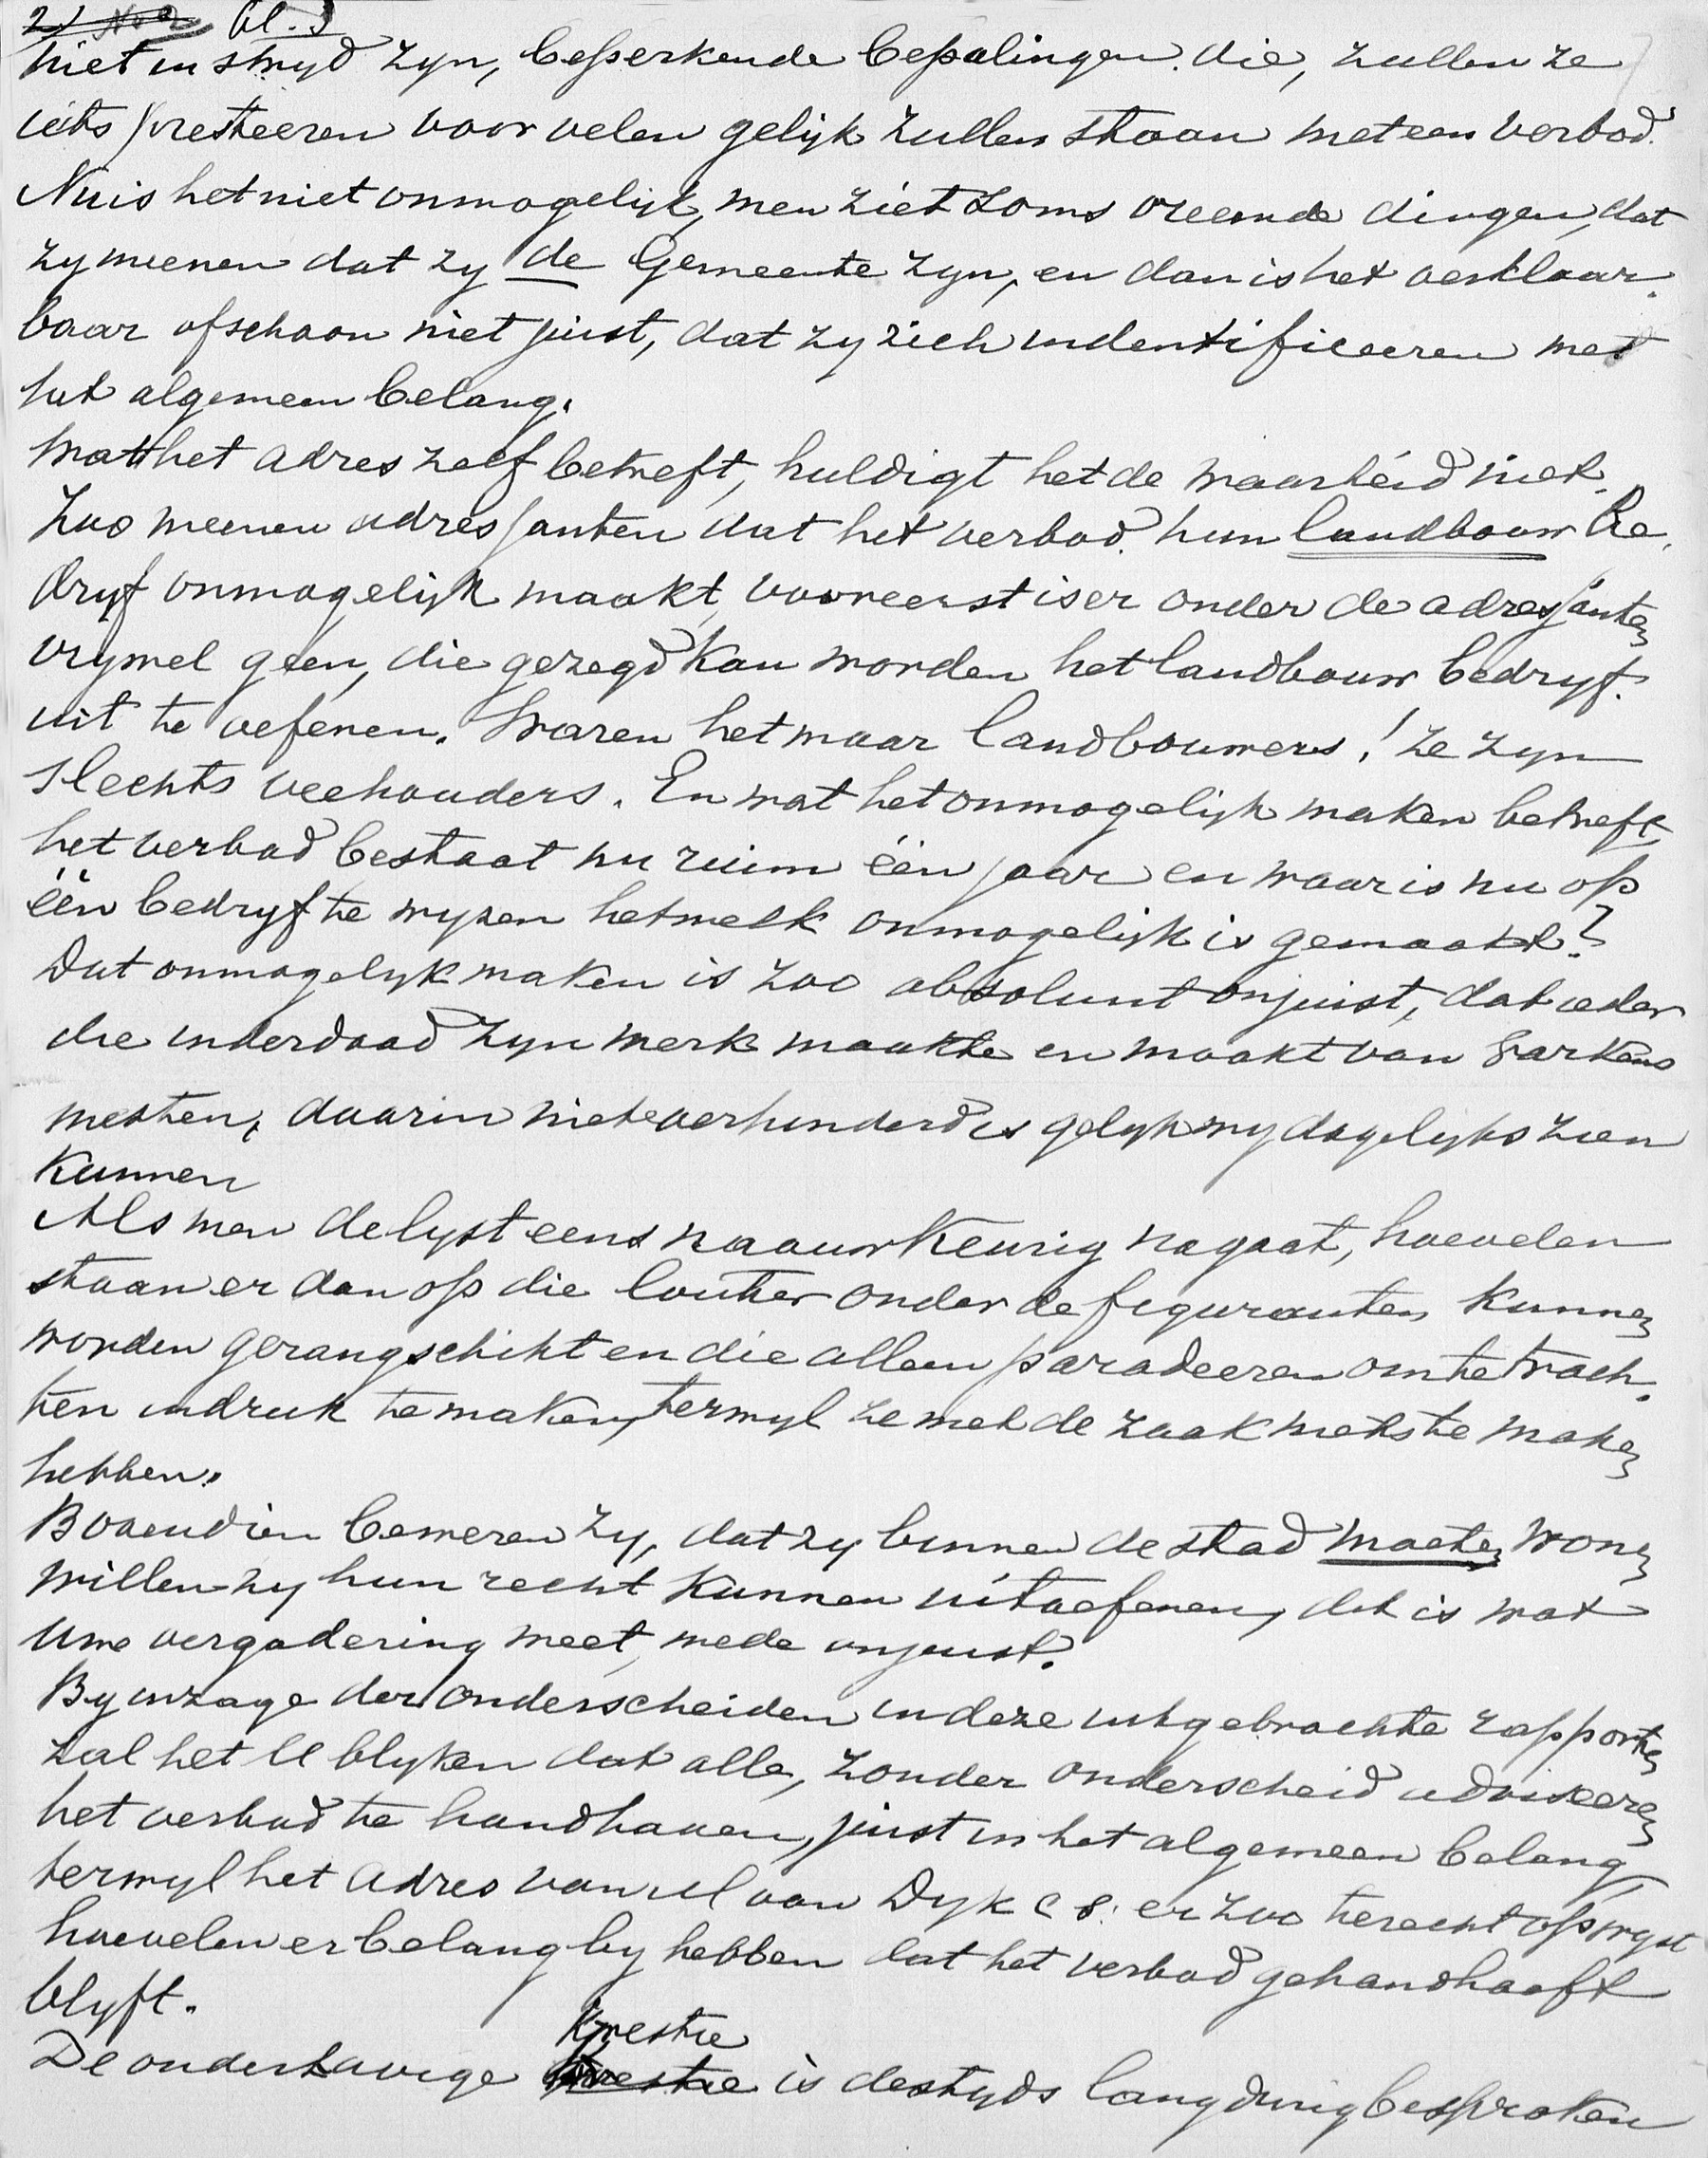 bl. 3
niet in stryd zyn, beperkende bepalingen die, zullen ze
iets presteeren voor velen gelijk zullen staan met een verbod.
Nu is het niet onmogelijk, men ziet soms vreemde dingen, dat
zy meenen dat zy de Gemeente zyn, en dan is het verklaar-
baar ofschoon niet juist, dat zy zich indentificeeren met
het algemeen belang.
Wat het adres zelf betreft, huldigt het de waarheid niet.
Zoo meenen adressanten dat het verbod hun landbouw be-
dryf onmogelijk maakt, vooreerst is er onder de adressanten
vrywel geen, die gezegd kan worden het landbouw bedryf
uit te oefenen. Waren het maar landbouwers! ze zyn
slechts veehouders. En wat het onmogelijk maken betreft,
het verbod bestaat nu ruim één jaar en waar is nu op
één bedryf te wyzen hetwelk onmogelijk is gemaakt?
Dat onmogelyk maken is zoo absoluut onjuist, dat ieder
die inderdaad zyn werk maakte en maakt van varkens
mesten, daarin niet verhinderd is gelyk wy dagelyks zien
kunnen
Als men de lyst eens naauwkeurig nagaat, hoevelen
staan er dan op die louter onder de figuranten kunnen
worden gerangschikt en die alleen paradeeren om te trach-
ten indruk te maken, terwyl ze met de zaak niets te maken
hebben.
Bovendien beweren zy, dat zy binnen de stad moeten wonen
willen zy hun recht kunnen uitoefenen, dit is wat
Uwe vergadering weet, mede onjuist.
By inzage der onderscheiden in deze uitgebrachte rapporten
zal het U blyken dat alle, zonder onderscheid adviseeren
het verbod te handhaven, juist in het algemeen belang,
terwyl het adres van M van Dyk c s. er zoo terecht op wyst
hoevelen er belang by hebben dat het verbod gehandhaaft
blyft.
Kwestie
De onderhavige is destyds langdurig besproken